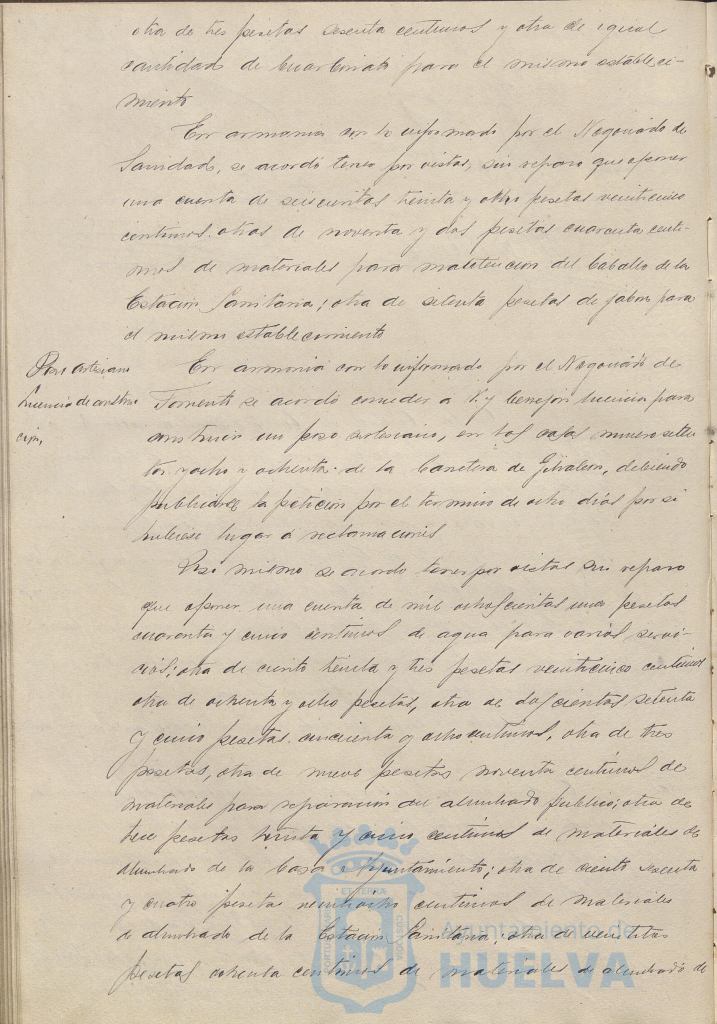 otra de tres pesetas sesenta centimos y otra de igual
cantidad de bicarbonato para el mismo estableci-
miento
En armonia con lo informado por el Negociado de
Sanidad, se acordó tener por vistas, sin reparo que oponer
una cuenta de seiscientas treinta y ocho pesetas veinticinco
centimos. otras de noventa y dos pesetas cuarenta centi-
mos de materiales para manutencion del Caballo de la
Estacion Sanitaria; otra de setenta pesetas de jabon para
el mismo establecimiento
Pozo artesiano
Licencia de construc
cion,
En armonia con lo informado por el Negociado de
Fomento se acordó conceder á licencia para
construir un pozo artesiano, en las casas numero seten
ta y ocho y ochenta de la Carretera de Gibraleon, debiendo
publicarse la peticion por el termino de ocho dias por si
hubiese lugar á reclamaciones
Asi mismo se acordo tener por vistas sin reparo
que oponer una cuenta de mil ochocientas una pesetas
cuarenta y cinco centimos de agua para varios servi-
cios; otra de ciento treinta y tres pesetas veinticinco centimos
otra de ochenta y ocho pesetas, otra de doscientas setenta
y cinco pesetas cincuenta y ocho centimos, otra de tres
pesetas, otra de nueve pesetas noventa centimos de
materiales para reparacion del alumbrado publico; otra de
trece pesetas treinta y cinco centimos de materiales de
alumbrado de la Casa Ayuntamiento; otra de ciento sesenta
y cuatro pesetas centimos de materiales
de alumbrado de la Estacion Sanitaria; otra de veintitres
pesetas ochenta centimos de materiales de alumbrado de
Ayuntamiento de
HUELVA